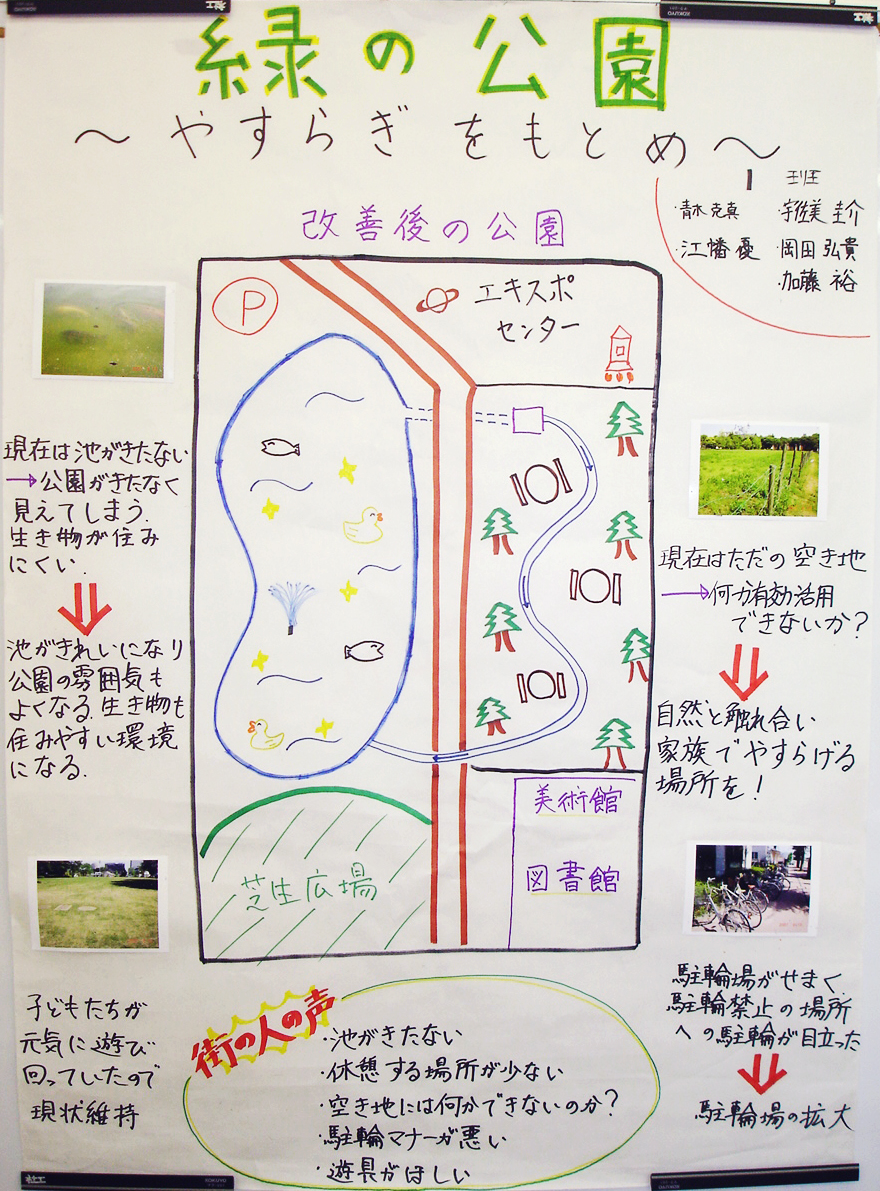 緑の公園
～やすらぎをもとめ～
1班
・青木克真
・宇佐美圭介
・江幡優
・岡田弘貴
・加藤裕
改善後の公園
P
エキスポ
センター
現在は池がきたない
→公園がきたなく
見えてしまう.
生き物が住み
にくい.
池がきれいになり
公園の雰囲気も
よくなる.生き物も
住みやすい環境
になる.
現在はただの空き地
→何か有効活用
できないか?
自然と触れ合い
家族でやすらげる
場所を!
美術館
図書館
芝生広場
子どもたちが
元気に遊び
回っていたので
現状維持
駐輪場がせまく
駐輪禁止の場所
への駐輪が目立った
駐輪場の拡大
街の人の声
・池がきたない
・休憩する場所が少ない
・空き地には何かできないのか?
・駐輪マナーが悪い
・遊具がほしい
KOKUYO
KOKUYO